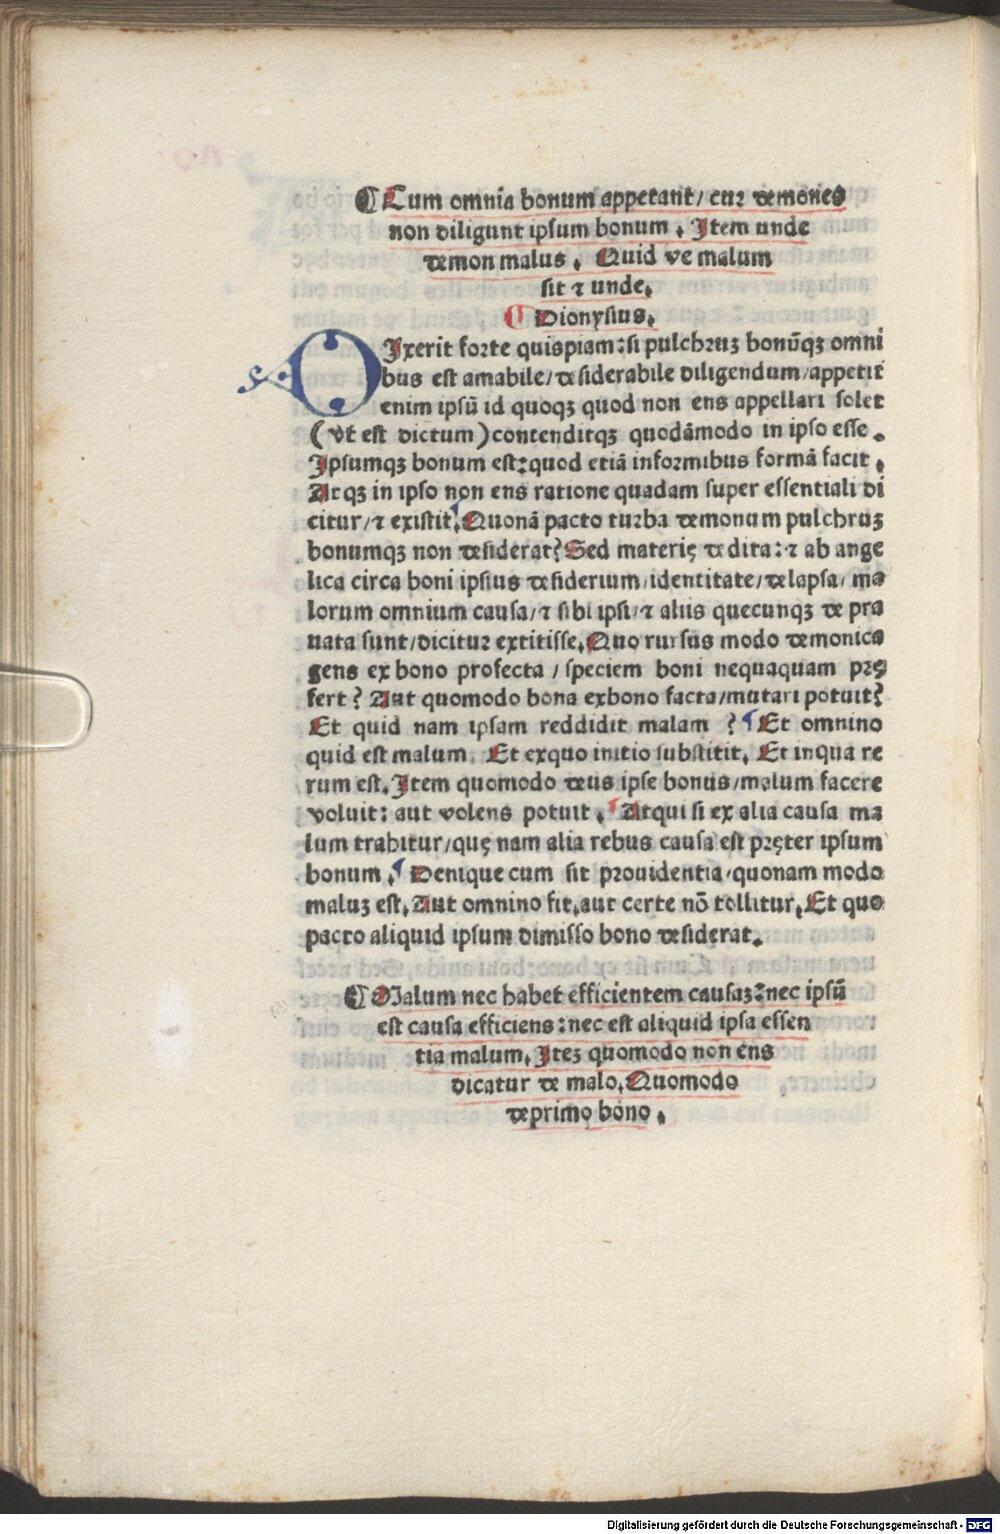 ¶ Cum omnia bonum appetant/ cur demones
non diligunt ipsum bonum. Item unde
demon malus. Quid ve malum
sit ⁊ unde.
¶ Dionysius.
DIxerit forte quispiam: si pulchruꝫ bonūqꝫ omni
bus est amabile/ desiderabile diligendum/ appetit
enim ipsū id quoqꝫ quod non ens appellari solet
(vt est dictum) contenditqꝫ quodāmodo in ipso esse.
Ipsumqꝫ bonum est: quod etiā informibus formā facit.
Atqꝫ in ipso non ens ratione quadam super essentiali di
citur/ ⁊ existit. Quonā pacto turba demonum pulchruꝫ
bonumqꝫ non desiderat? Sed materię dedita: ⁊ ab ange
lica circa boni ipsius desiderium/ identitate/ delapsa/ ma
lorum omnium causa/ ⁊ sibi ipsi/ ⁊ aliis quecunqꝫ de pra
uata sunt/ dicitur extitisse. Quo rursus modo demonica
gens ex bono profecta / speciem boni nequaquam prę
fert? Aut quomodo bona exbono facta/ mutari potuit?
Et quid nam ipsam reddidit malam ? Et omnino
quid est malum. Et exquo initio substitit. Et inqua re
rum est. Item quomodo deus ipse bonus/ malum facere
voluit: aut volens potuit. Atqui si ex alia causa ma
lum trahitur/ quę nam alia rebus causa est pręter ipsum
bonum. Denique cum sit prouidentia/ quonam modo
maluꝫ est. Aut omnino fit. aut certe nō tollitur. Et quo
pacto aliquid ipsum dimisso bono desiderat.
¶ Malum nec habet efficientem causaꝫ: nec ipsū
est causa efficiens: nec est aliquid ipsa essen
tia malum. Iteꝫ quomodo non ens
dicatur de malo. Quomodo
deprimo bono.
Digitalisierung gefördert durch die Deutsche Forschungsgemeinschaft - DFG